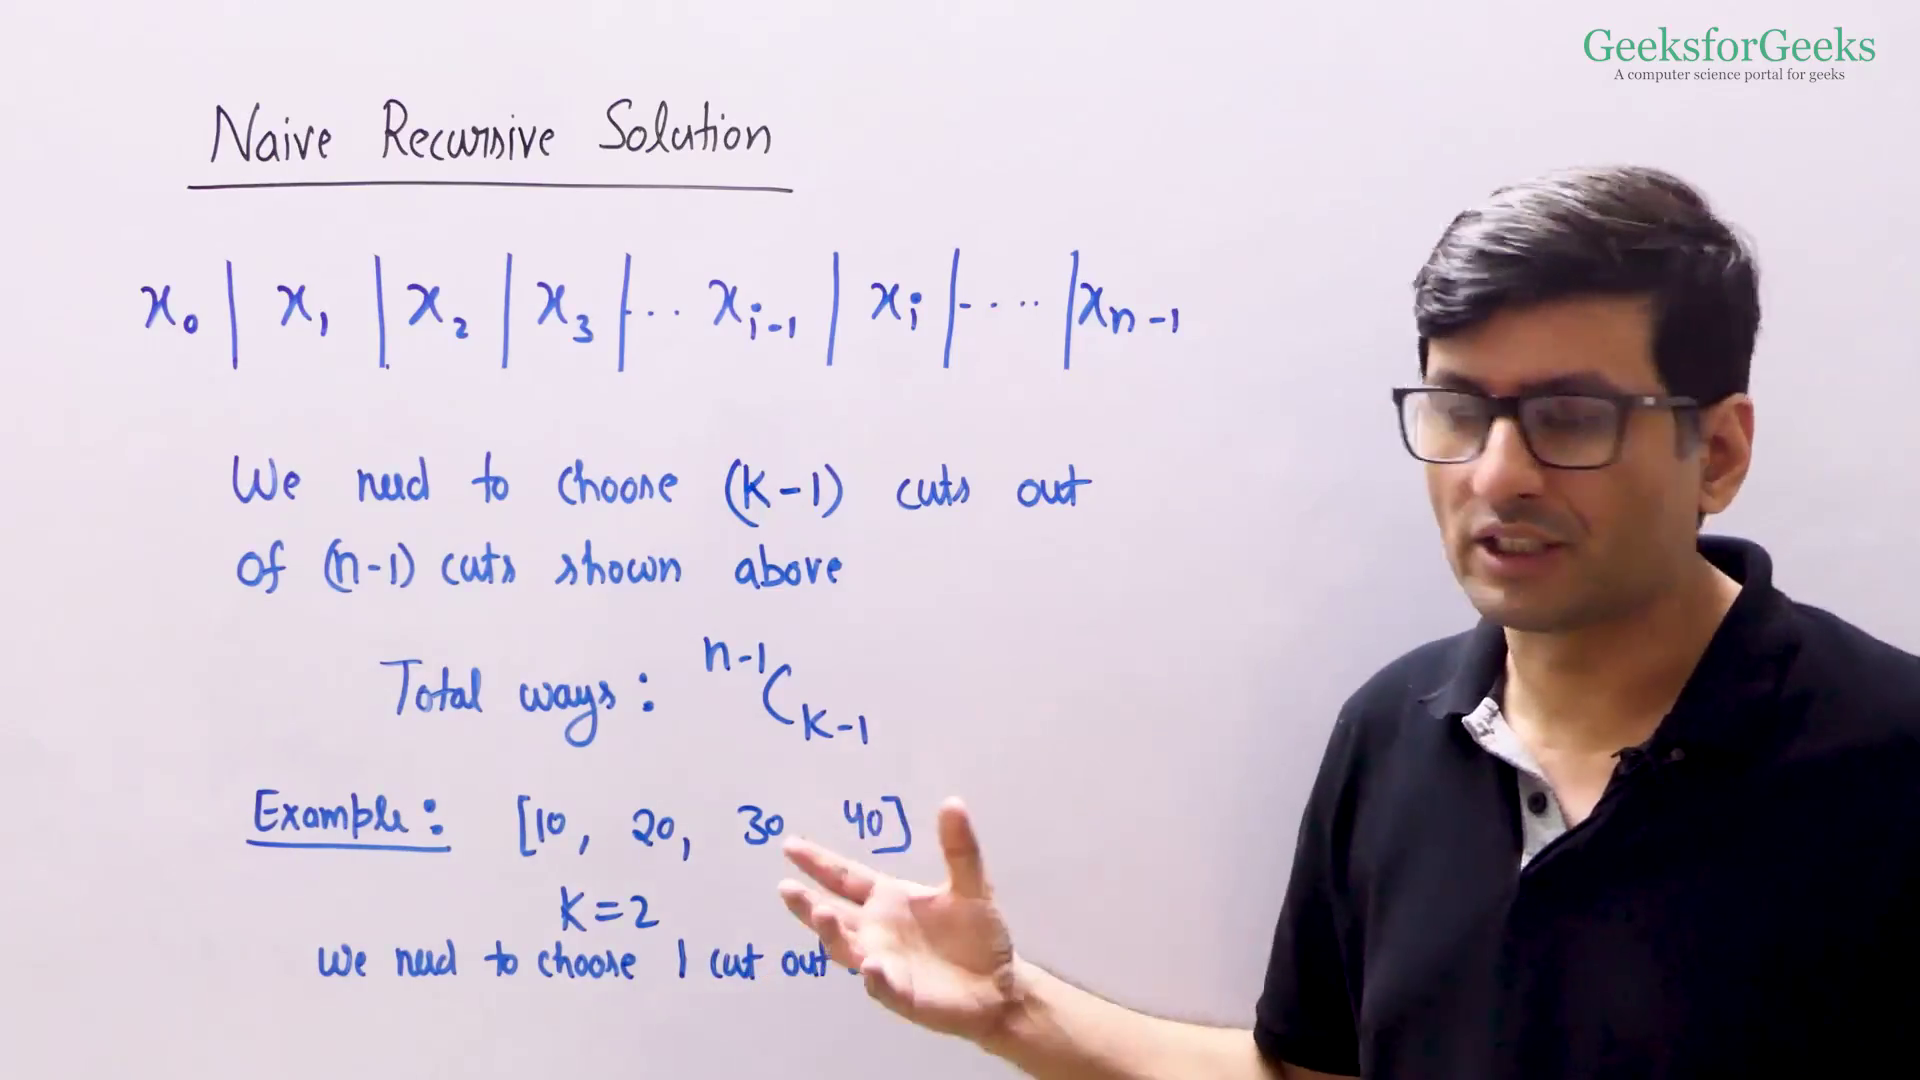 GeeksforGeeks
A computer science portal for geeks
Naive Recursive Solution
x₀ | x₁ | x₂ | x₃ |... xᵢ₋₁ | xᵢ |.... |xₙ₋₁
We need to choose (K-1) cuts out
of (n-1) cuts shown above
Total ways : ⁿ⁻¹Cₖ₋₁
Example : [10, 20, 30 40]
K=2
We need to choose 1 cut out